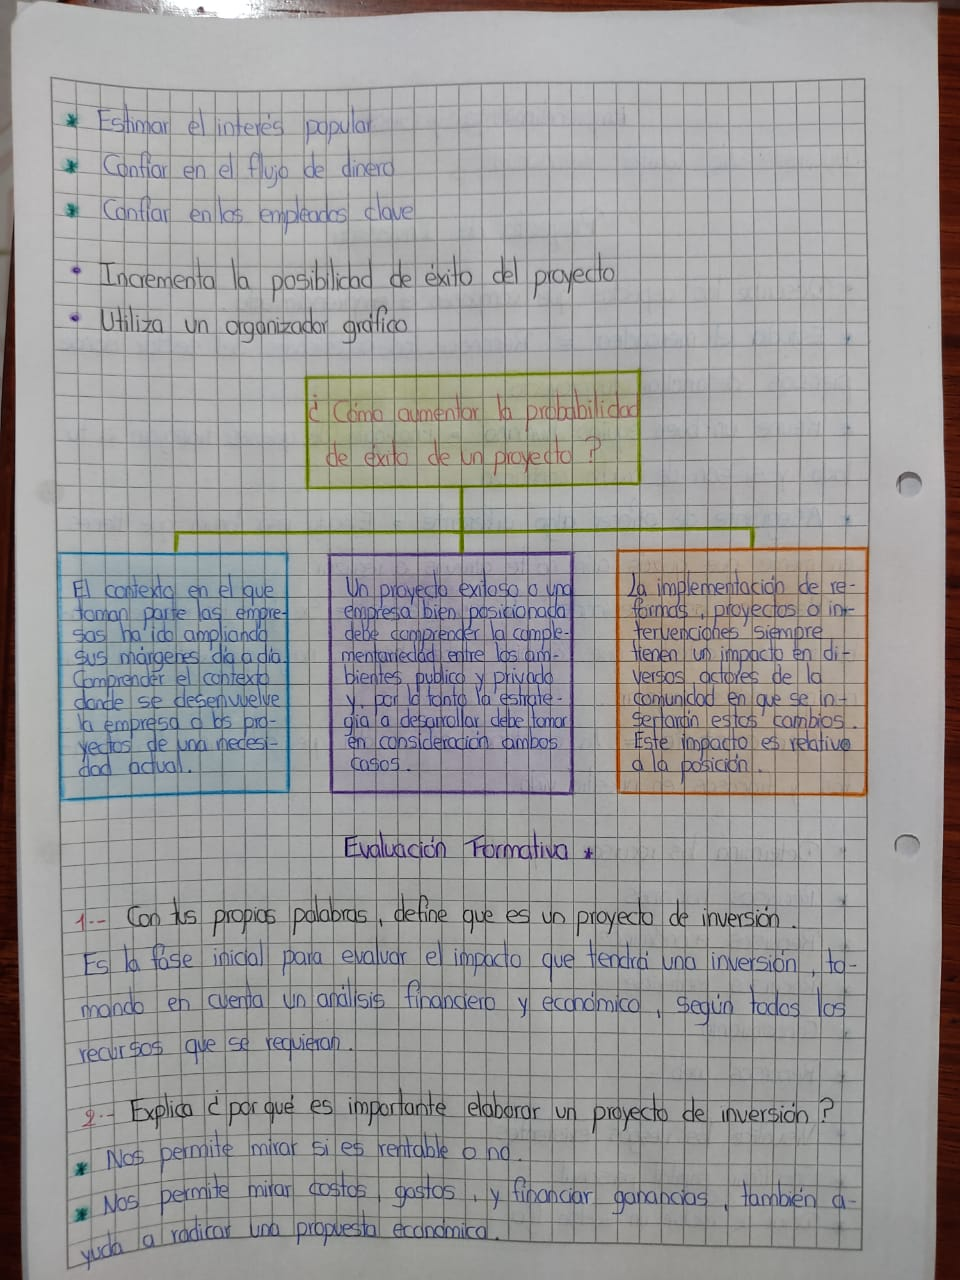 * Estimar el interés popular
* Confiar en el flujo de dinero
* Confiar en los empleados clave
• Incrementa la posibilidad de éxito del proyecto
• Utiliza un organizador gráfico
¿Cómo aumentar la probabilidad
de éxito de un proyecto?
El contexto en el que
toman parte las empre-
sas ha ido ampliando
sus márgenes día a día.
Comprender el contexto
donde se desenvuelve
la empresa o los pro-
yectos de una necesi-
dad actual.
Un proyecto exitoso o una
empresa bien posicionada
debe comprender la comple-
mentariedad entre los am-
bientes publico y privado
y, por lo tanto la estrate-
gia a desarrollar debe tomar
en consideración ambos
casos.
La implementación de re-
formas, proyectos o in-
tervenciones siempre
tienen un impacto en di-
versos actores de la
comunidad en que se in-
sertarán estos cambios.
Este impacto es relativo
a la posición.
Evaluación Formativa *
1.- Con tus propias palabras, define que es un proyecto de inversión.
Es la fase inicial para evaluar el impacto que tendrá una inversión, to-
mando en cuenta un análisis financiero y económico, según todos los
recursos que se requieran.
2.- Explica ¿por qué es importante elaborar un proyecto de inversión?
* Nos permite mirar si es rentable o no.
* Nos permite mirar costos, gastos, y financiar ganancias, también a-
yuda a radicar una propuesta económica.